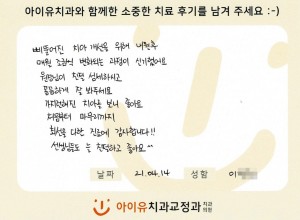 아이유치과와 함께한 소중한 치료 후기를 남겨 주세요 :-)
삐뚤어진 치아 개선을 위해 내원후
매월 조금씩 변화되는 과정이 신기했어요
원장님이 친절 섬세하시고
꼼꼼하게 잘 봐주세요
가지런해진 치아를 보니 좋아요
처음부터 마무리까지
최선을 다한 진료에 감사합니다!!
선생님들도 늘 친절하고 좋아요^^
날짜 21.04.14 성함 이
아이유치과교정과 치과의원